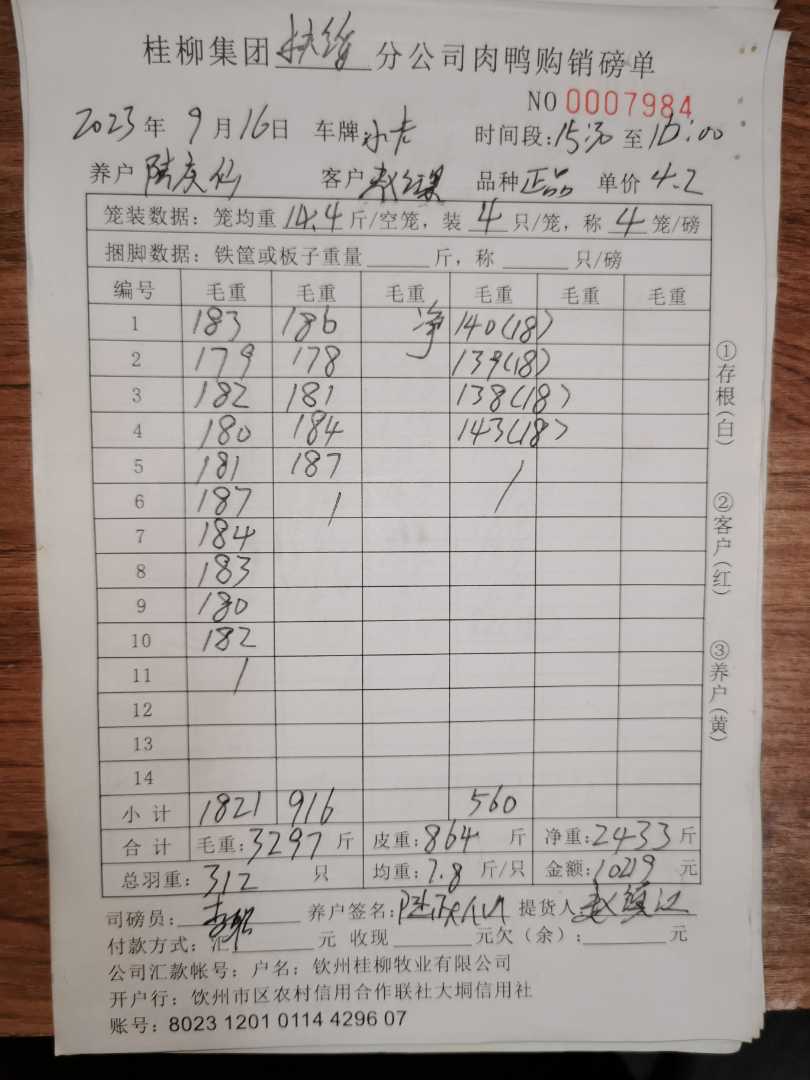 桂柳集团 分公司肉鸭购销磅单
NO 0007984
2023年 9月16日 车牌 小卡 时间段:15:30至16:00
养户 陆庆仙 客户 品种 正品 单价 4.2
笼装数据：笼均重 14.4 斤/空笼，装 4 只/笼，称 4 笼/磅
捆脚数据：铁筐或板子重量______斤，称______只/磅
编号 毛重 毛重 毛重 毛重 毛重 毛重
1 183 186 净 140(18)
2 179 178 139(18)
3 182 181 138(18)
4 180 184 143(18)
5 181 187 /
6 187 /
7 184
8 183
9 180
10 182
11 /
12
13
14
小计 1821 916 560
合计 毛重:3297斤 皮重:864斤 净重:2433斤
总羽重:312只 均重:7.8斤/只 金额:10219元
司磅员: 养户签名: 提货人
付款方式:汇______元 收现______元欠（余）:______元
公司汇款帐号：户名：钦州桂柳牧业有限公司
开户行：饮州市区农村信用合作联社大垌信用社
账号：8023 1201 0114 4296 07
①存根(白)
②客户(红)
③养户(黄)